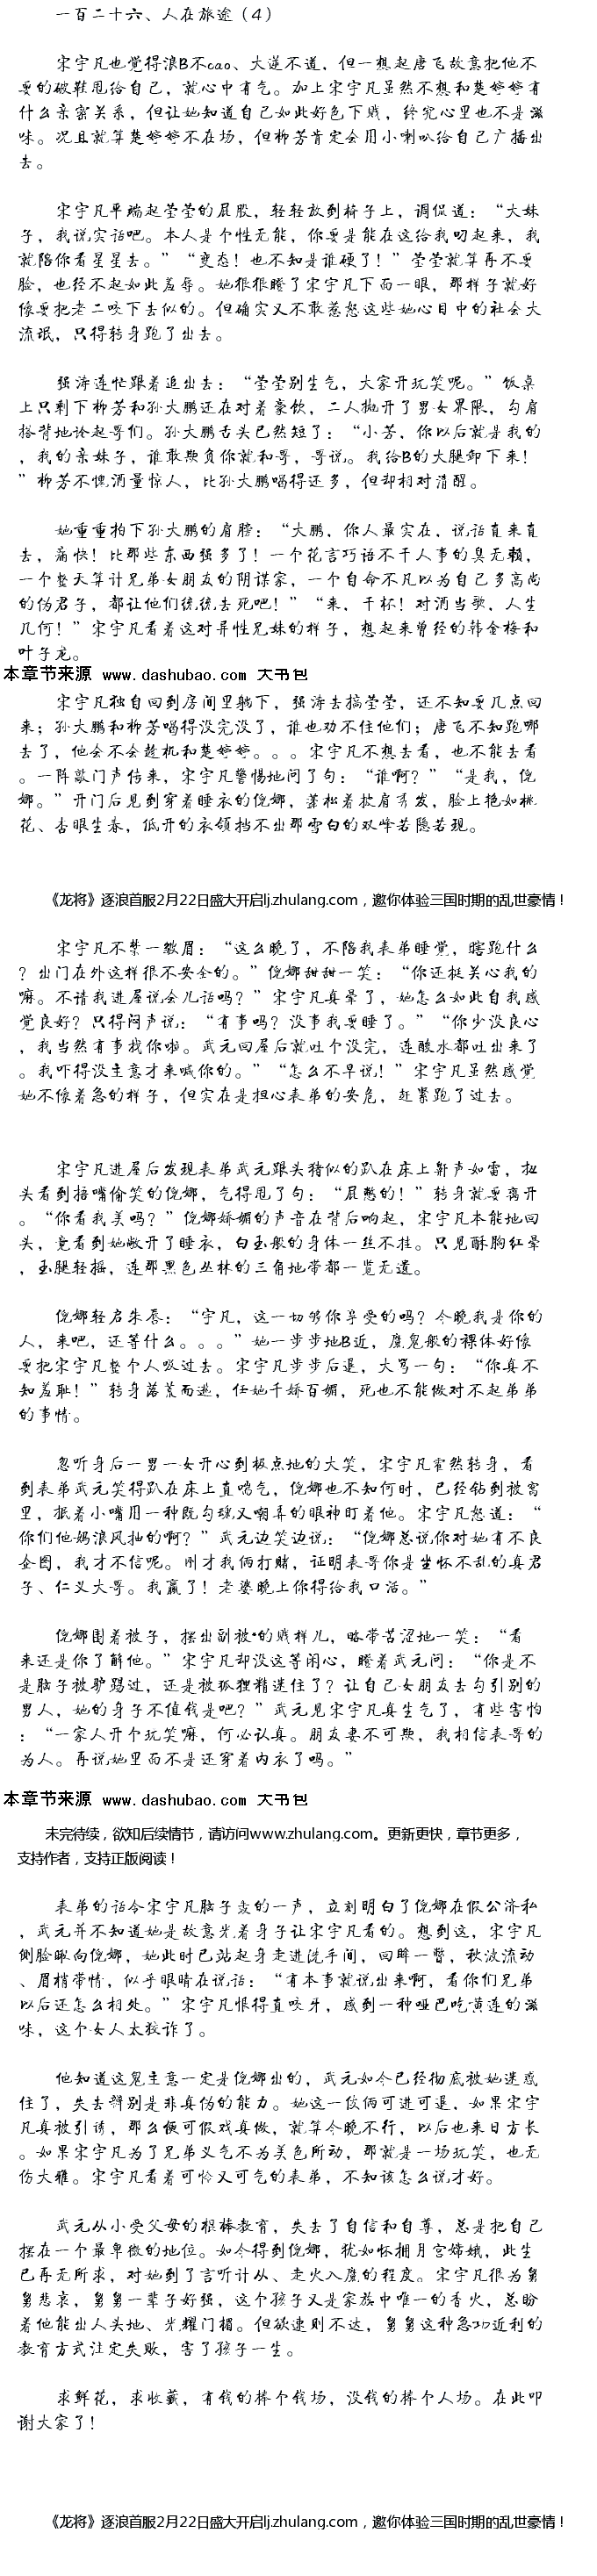 一百二十六、人在旅途（4）
宋宇凡也觉得浪B不cao、大逆不道，但一想起唐飞故意把他不
要的破鞋甩给自己，就心中有气。加上宋宇凡虽然不想和楚婷婷有
什么亲密关系，但让她知道自己如此好色下贱，终究心里也不是滋
味。况且就算楚婷婷不在场，但柳芳肯定会用小喇叭给自己广播出
去。
宋宇凡平端起莹莹的屁股，轻轻放到椅子上，调侃道：“大妹
子，我说实话吧。本人是个性无能，你要是能在这给我叼起来，我
就陪你看星星去。”“变态！也不知是谁硬了！”莹莹就算再不要
脸，也经不起如此羞辱。她狠狠瞪了宋宇凡下面一眼，那样子就好
像要把老二咬下去似的。但确实又不敢惹怒这些她心目中的社会大
流氓，只得转身跑了出去。
强涛连忙跟着追出去：“莹莹别生气，大家开玩笑呢。”饭桌
上只剩下柳芳和孙大鹏还在对着豪饮，二人抛开了男女界限，勾肩
搭背地论起哥们。孙大鹏舌头已然短了：“小芳，你以后就是我的
，我的亲妹子，谁敢欺负你就和哥，哥说。我给B的大腿卸下来！
”柳芳不愧酒量惊人，比孙大鹏喝得还多，但却相对清醒。
她重重拍下孙大鹏的肩膀：“大鹏，你人最实在，说话直来直
去，痛快！比那些东西强多了！一个花言巧语不干人事的臭无赖，
一个整天算计兄弟女朋友的阴谋家，一个自命不凡以为自己多高尚
的伪君子，都让他们统统去死吧！”“来，干杯！对酒当歌，人生
几何！”宋宇凡看着这对异性兄妹的样子，想起来曾经的韩金梅和
叶子龙。
本章节来源 www.dashubao.com 大书包
宋宇凡独自回到房间里躺下，强涛去搞莹莹，还不知要几点回
来；孙大鹏和柳芳喝得没完没了，谁也劝不住他们；唐飞不知跑哪
去了，他会不会趁机和楚婷婷。。。宋宇凡不想去看，也不能去看
。一阵敲门声传来，宋宇凡警惕地问了句：“谁啊？”“是我，倪
娜。”开门后见到穿着睡衣的倪娜，蓬松着披肩秀发，脸上艳如桃
花、杏眼生春，低开的衣领挡不出那雪白的双峰若隐若现。
《龙将》逐浪首服2月22日盛大开启lj.zhulang.com，邀你体验三国时期的乱世豪情！
宋宇凡不禁一皱眉：“这么晚了，不陪我表弟睡觉，瞎跑什么
？出门在外这样很不安全的。”倪娜甜甜一笑：“你还挺关心我的
嘛。不请我进屋说会儿话吗？”宋宇凡真晕了，她怎么如此自我感
觉良好？只得闷声说：“有事吗？没事我要睡了。”“你少没良心
，我当然有事找你啦。武元回屋后就吐个没完，连酸水都吐出来了
。我吓得没主意才来喊你的。”“怎么不早说！”宋宇凡虽然感觉
她不像着急的样子，但实在是担心表弟的安危，赶紧跑了过去。
宋宇凡进屋后发现表弟武元跟头猪似的趴在床上鼾声如雷，扭
头看到捂嘴偷笑的倪娜，气得甩了句：“屁憋的！”转身就要离开
。“你看我美吗？”倪娜娇媚的声音在背后响起，宋宇凡本能地回
头，竟看到她敞开了睡衣，白玉般的身体一丝不挂。只见酥胸红晕
，玉腿轻摇，连那黑色丛林的三角地带都一览无遗。
倪娜轻启朱唇：“宇凡，这一切够你享受的吗？今晚我是你的
人，来吧，还等什么。。。”她一步步地B近，魔鬼般的裸体好像
要把宋宇凡整个人吸过去。宋宇凡步步后退，大骂一句：“你真不
知羞耻！”转身落荒而逃，任她千娇百媚，死也不能做对不起弟弟
的事情。
忽听身后一男一女开心到极点地的大笑，宋宇凡霍然转身，看
到表弟武元笑得趴在床上直喘气，倪娜也不知何时，已经钻到被窝
里，抿着小嘴用一种既勾魂又嘲弄的眼神盯着他。宋宇凡怒道：“
你们他妈浪风抽的啊？”武元边笑边说：“倪娜总说你对她有不良
企图，我才不信呢。刚才我俩打赌，证明表哥你是坐怀不乱的真君
子、仁义大哥。我赢了！老婆晚上你得给我口活。”
倪娜围着被子，摆出副被*的贱样儿，略带苦涩地一笑：“看
来还是你了解他。”宋宇凡却没这等闲心，瞪着武元问：“你是不
是脑子被驴踢过，还是被狐狸精迷住了？让自己女朋友去勾引别的
男人，她的身子不值钱是吧？”武元见宋宇凡真生气了，有些害怕
：“一家人开个玩笑嘛，何必认真。朋友妻不可欺，我相信表哥的
为人。再说她里面不是还穿着内衣了吗。”
本章节来源 www.dashubao.com 大书包
未完待续，欲知后续情节，请访问www.zhulang.com。更新更快，章节更多，
支持作者，支持正版阅读！
表弟的话令宋宇凡脑子轰的一声，立刻明白了倪娜在假公济私
，武元并不知道她是故意光着身子让宋宇凡看的。想到这，宋宇凡
侧脸瞅向倪娜，她此时已站起身走进洗手间，回眸一瞥，秋波流动
、眉梢带情，似乎眼睛在说话：“有本事就说出来啊，看你们兄弟
以后还怎么相处。”宋宇凡恨得直咬牙，感到一种哑巴吃黄连的滋
味，这个女人太狡诈了。
他知道这鬼主意一定是倪娜出的，武元如今已经彻底被她迷惑
住了，失去辨别是非真伪的能力。她这一伎俩可进可退，如果宋宇
凡真被引诱，那么便可假戏真做，就算今晚不行，以后也来日方长
。如果宋宇凡为了兄弟义气不为美色所动，那就是一场玩笑，也无
伤大雅。宋宇凡看着可怜又可气的表弟，不知该怎么说才好。
武元从小受父母的棍棒教育，失去了自信和自尊，总是把自己
摆在一个最卑微的地位。如今得到倪娜，犹如怀拥月宫嫦娥，此生
已再无所求，对她到了言听计从、走火入魔的程度。宋宇凡很为舅
舅悲哀，舅舅一辈子好强，这个孩子又是家族中唯一的香火，总盼
着他能出人头地、光耀门楣。但欲速则不达，舅舅这种急功近利的
教育方式注定失败，害了孩子一生。
求鲜花，求收藏，有钱的捧个钱场，没钱的捧个人场。在此叩
谢大家了！
《龙将》逐浪首服2月22日盛大开启lj.zhulang.com，邀你体验三国时期的乱世豪情！